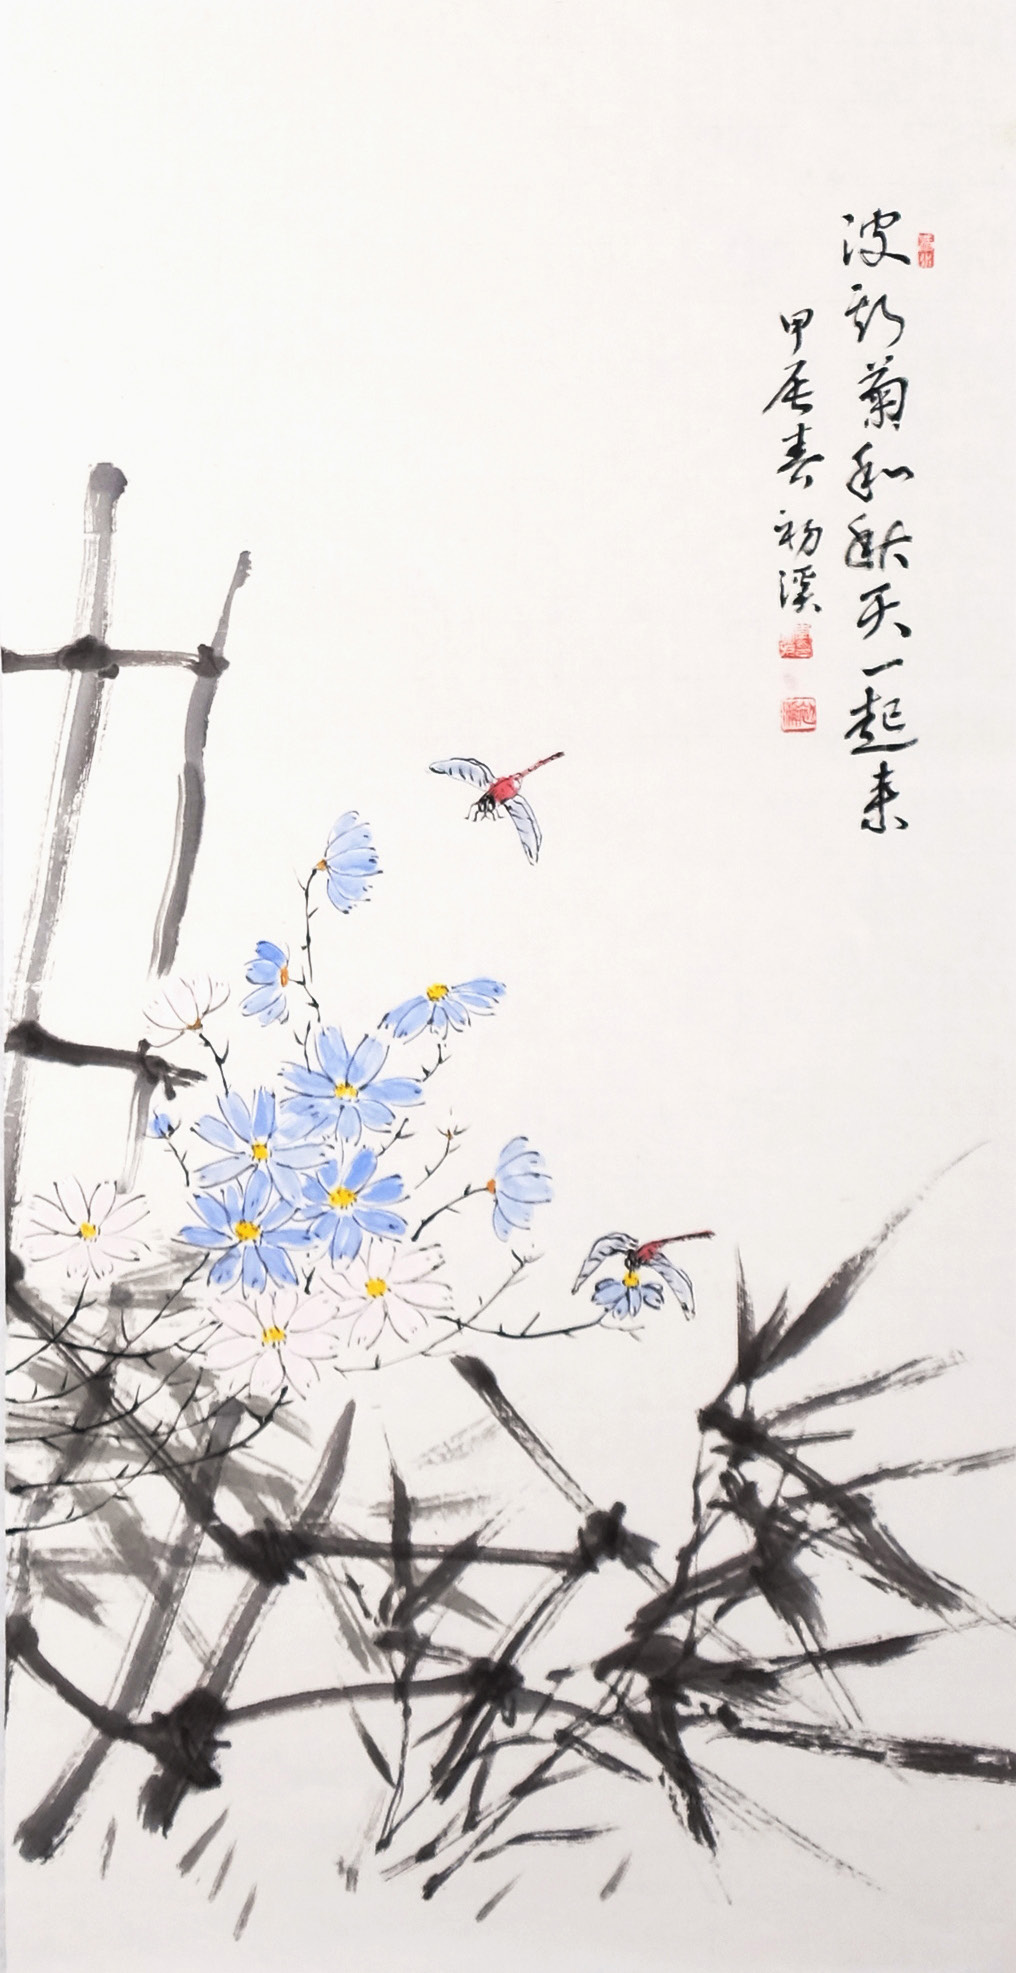 波斯菊和秋天一起来
甲辰春 初溪